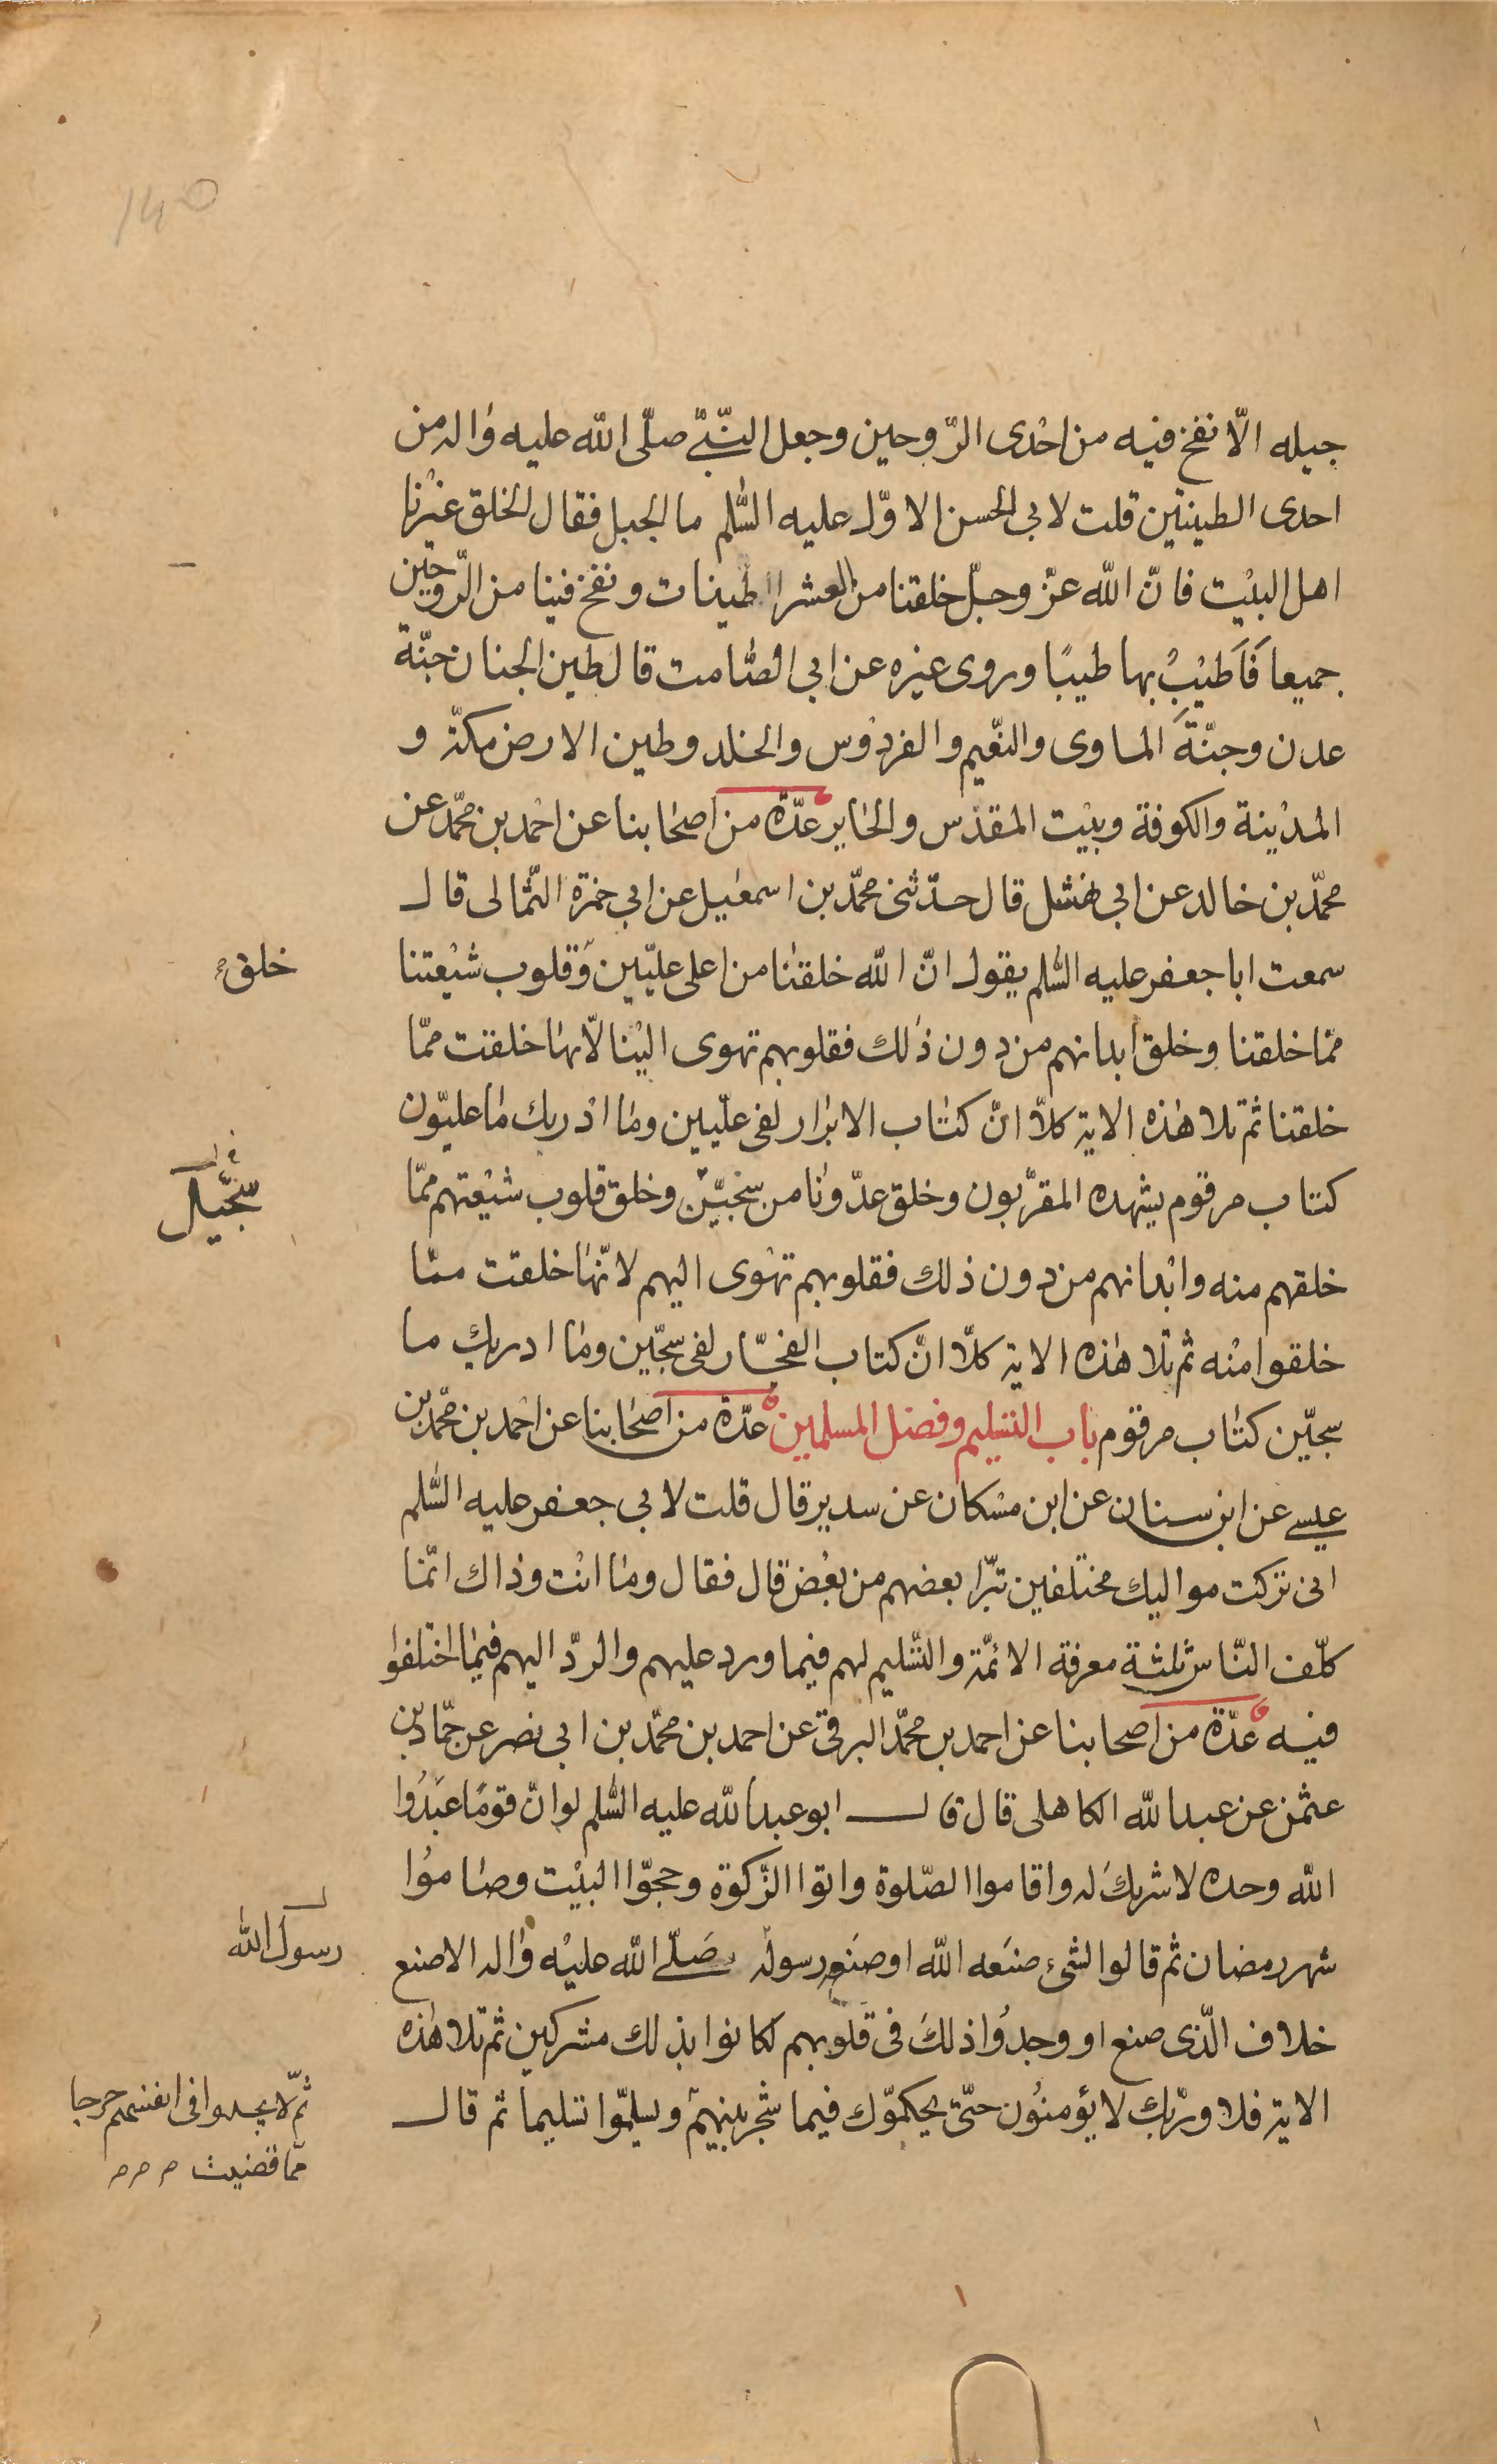 ١٤٥
جبله الّا نفخ فيه من احْدى الرّوحين وجعل النّبىّ صلّى الله عليه واٰله من
احدى الطينتين قلت لابى الحسن الاوّل عليه السّلم ما الجبل فقال الخلق غيْرنا
اهل البيْت فانّ الله عزّ وجلّ خلقنا من العشر الطينات ونفخ فينا من الرّوحيْن
جميعا فَاَطْيِبْ بها طيبًا وروى غيره عن ابى الصّامت قال طين الجنان جنّة
عدن وجنّةَ الماوى والنّعيم والفردُوس والخلد وطين الارض مكّة و
المديْنة والكوفة وبيْت المقدّس والحاير عدّة من اصحٰابنا عن احْمد بن محمّد عن
محمّد بن خالد عن ابى نهشل قال حدّثنى محمّد بن اسمعٰيل عن ابى حمزة الثّمالى قال
سمعت ابا جعفر عليه السّلم يقول انّ الله خلقنٰا من اعلى علّيّين وَقلوب شيْعتنا
خلق
ممّا خلقنا وخلق ابدانهم من دون ذٰلك فقلوبهم تهوى اليْنا لانّها خلقت ممّا
خلقنا ثمّ تلا هٰذه الاية كلّا انّ كتٰاب الابرٰار لفى علّيين ومٰا ادْريك مٰا علیّون
كتاب مرقوم يشهده المقرّبون وخلق عدّونٰا من سجّيْن وخلق قلوب شيْعتهم ممّا
سجّيل
خلقهم منه وابْدانهم من دون ذلك فقلوبهم تهْوى اليهم لانّهٰا خلقت ممّا
خلقوا منْه ثمّ تلا هٰذه الاية كلّا انّ كتاب الفجّار لفى سجّين ومٰا ادريك ما
سجّين كتٰاب مرقوم باب التسليم وفضل المسلمين عدّة من اصحٰابنا عن احْمد بن محمّد بن
عيسى عن ابن سنان عن ابن مسْكان عن سدير قال قلت لابى جعفر عليه السّلم
انى تركت مواليك مختلفين تبّرا بعضهم من بعْض قال فقال ومٰا انْت وذٰاك انّما
كلّف النّاس ثلثة معرفة الائمّة والتّسليم لهم فيما ورد عليهم والردّ اليهم فيمٰا اختلفوا
فيه عدّة من اصحابنا عن احمد بن محمّد البرقى عن احمد بن محمّد بن ابى نصر عن حمّاد بن
عثمن عن عبد الله الكاهلى قال قال ابو عبد الله عليه السّلم لو انّ قومًا عَبَدُوا
الله وحده لا شريك له واقاموا الصّلوة واتوا الزّكوة وحجّوا البيْت وصٰاموُا
شهر رمضان ثم قالوا لشىء صنَعه الله او صنَعه رسوله صَلّى الله عليْه واٰله الا صنع
رسول الله
خلاف الّذى صنع او وجدُوا ذلكَ فى قلوبهم لكانوا بذلك مشركين ثم تلا هٰذه
الاية فلا وربّك لا يؤمنوُن حتّى يحكموّك فيما شجر بينهم ويسلّموا تسليما ثم قال
ثم لا يجدوا فى انفسهم حرجا
ممّا قضيت